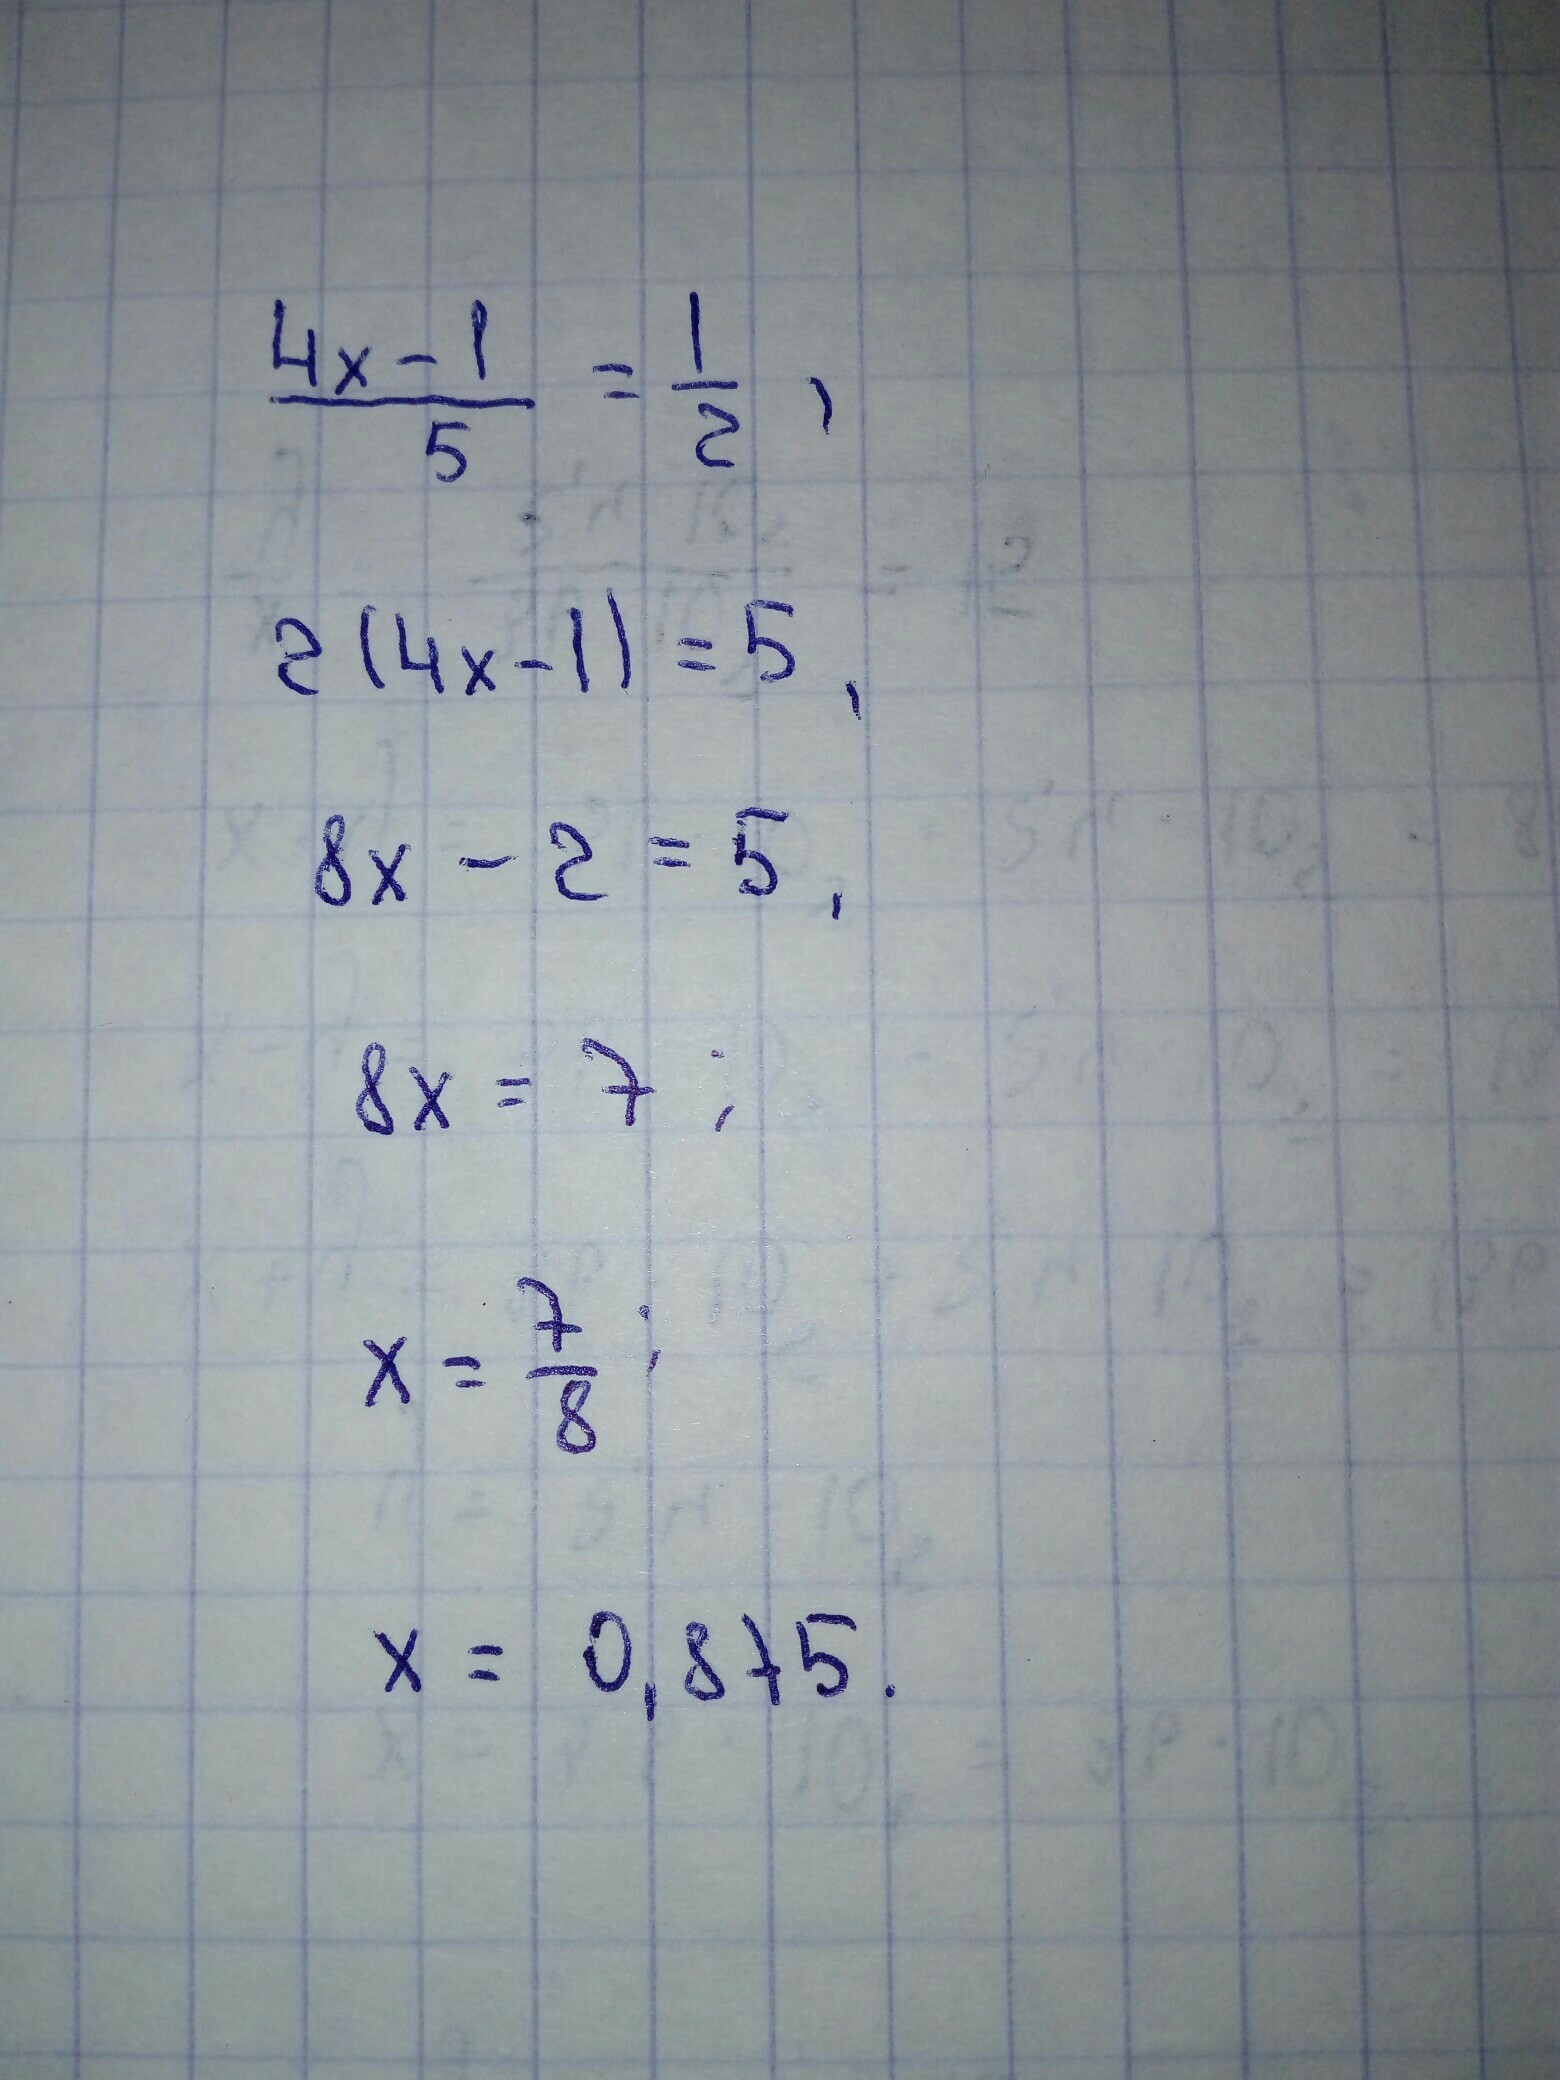 4x-1/5 = 1/2,
2(4x-1) = 5,
8x - 2 = 5,
8x = 7;
x = 7/8;
x = 0,875.